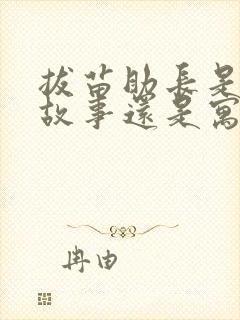 拔苗助長是
故事還是寓
冉由